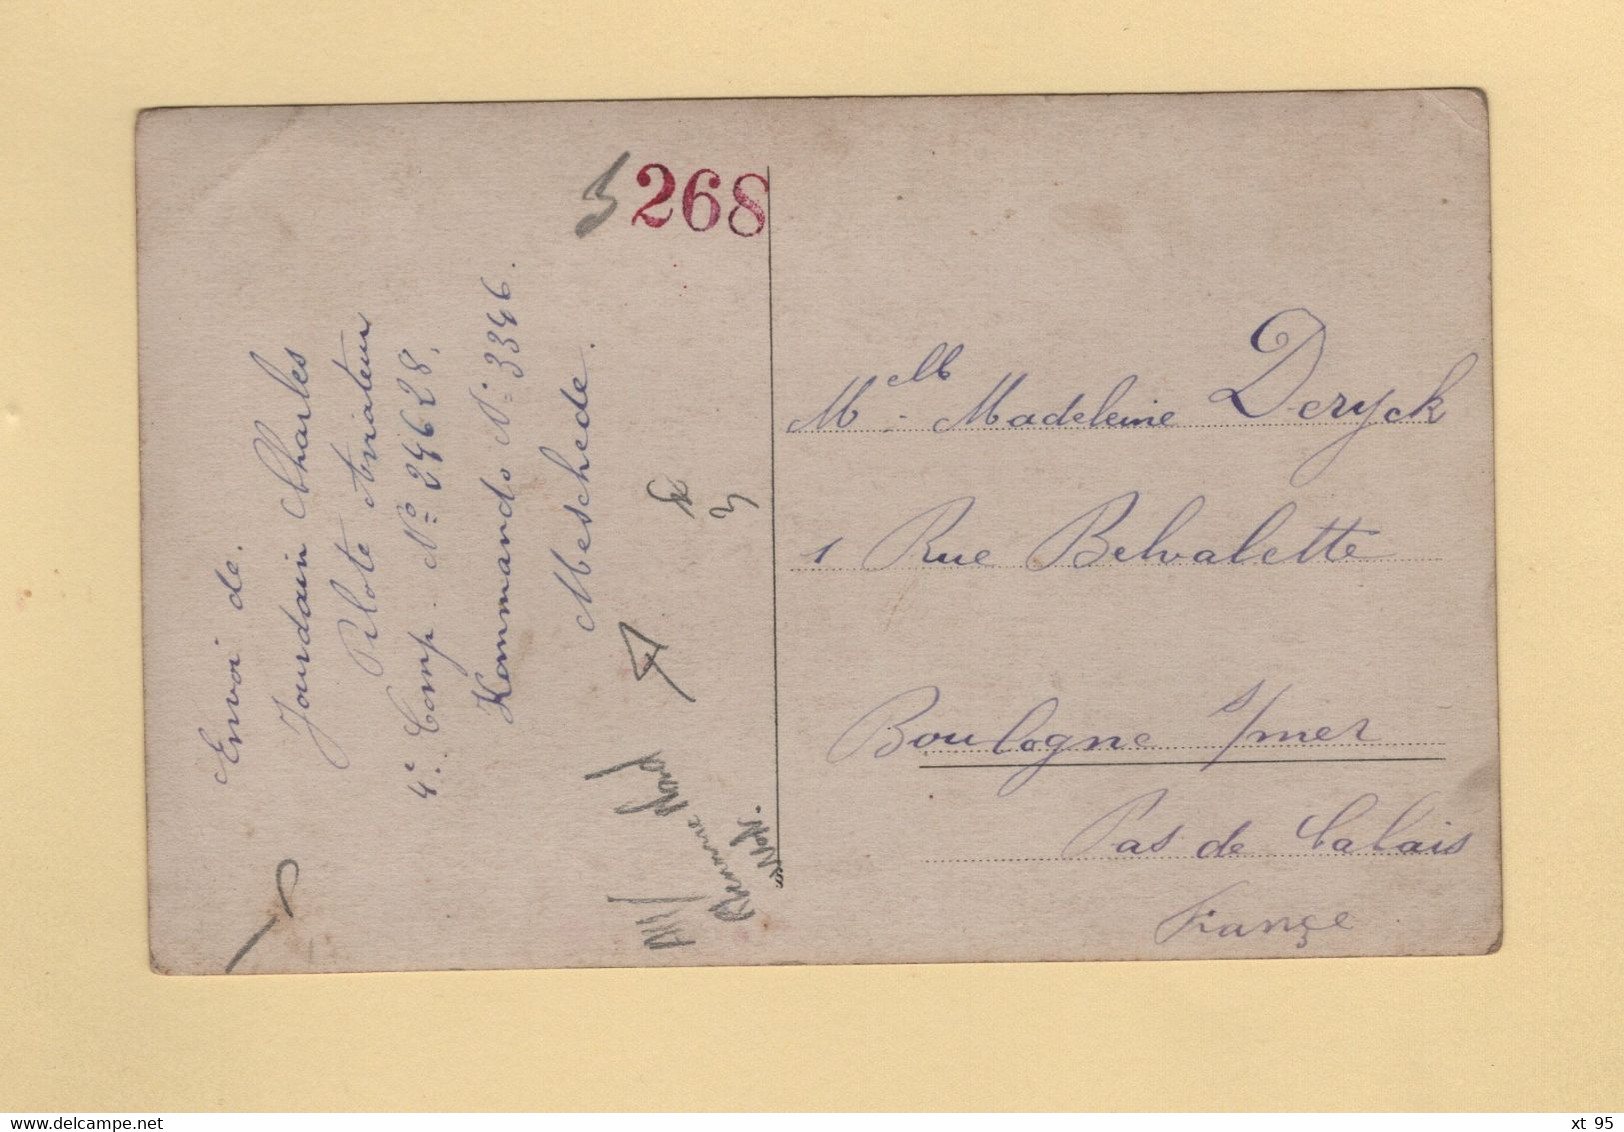 Envoi de.
Jourdain Charles
Pilote Aviateur
4e. Comp. No= 24628.
Kommando No= 3346.
Meschede.
268
Melle - Madeleine Deryck
1 Rue Belvalette
Boulogne s/mer
Pas de Calais
France
xt 95